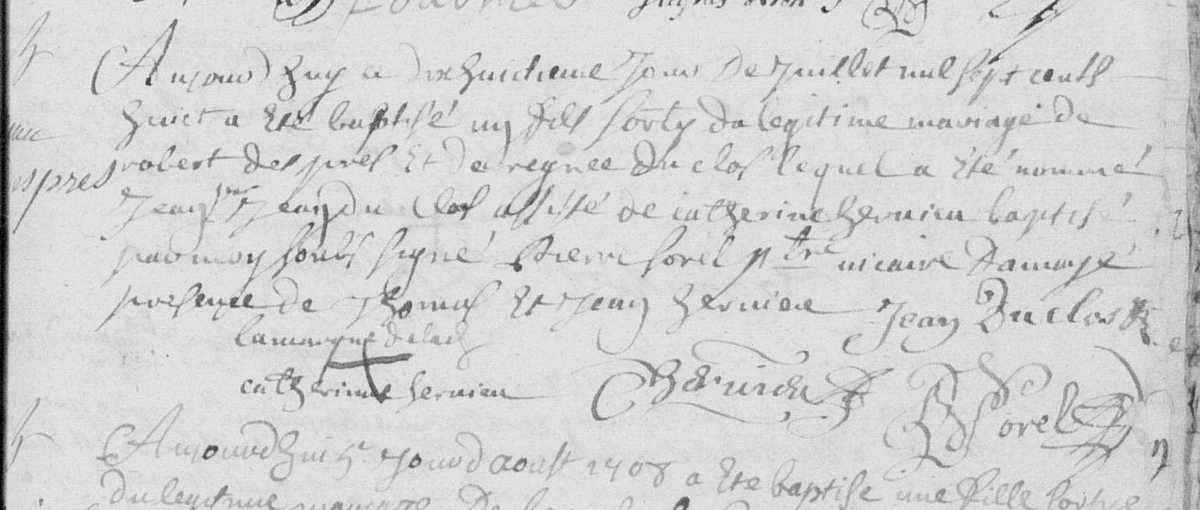 Aujourdhuy ce dixhuictieme Jour de Juillet mil sept cents
huict a eté baptisé un fils sorty du legitime mariage de
robert despres Et de regnee du clos lequel a été nommé
Jean par Jean du Clos assisté de catherine hernieu baptisé
par moy soubs signé Pierre sorel ptre vicaire
presence de Thomas Et Jean hernieu Jean Duclos
la marque de lad
catherine hernieu
hernieu
P Sorel
spres
Aujourdhui 5e Jour daoust 1708 a Ete baptise une fille sortye
du legitime mariage De